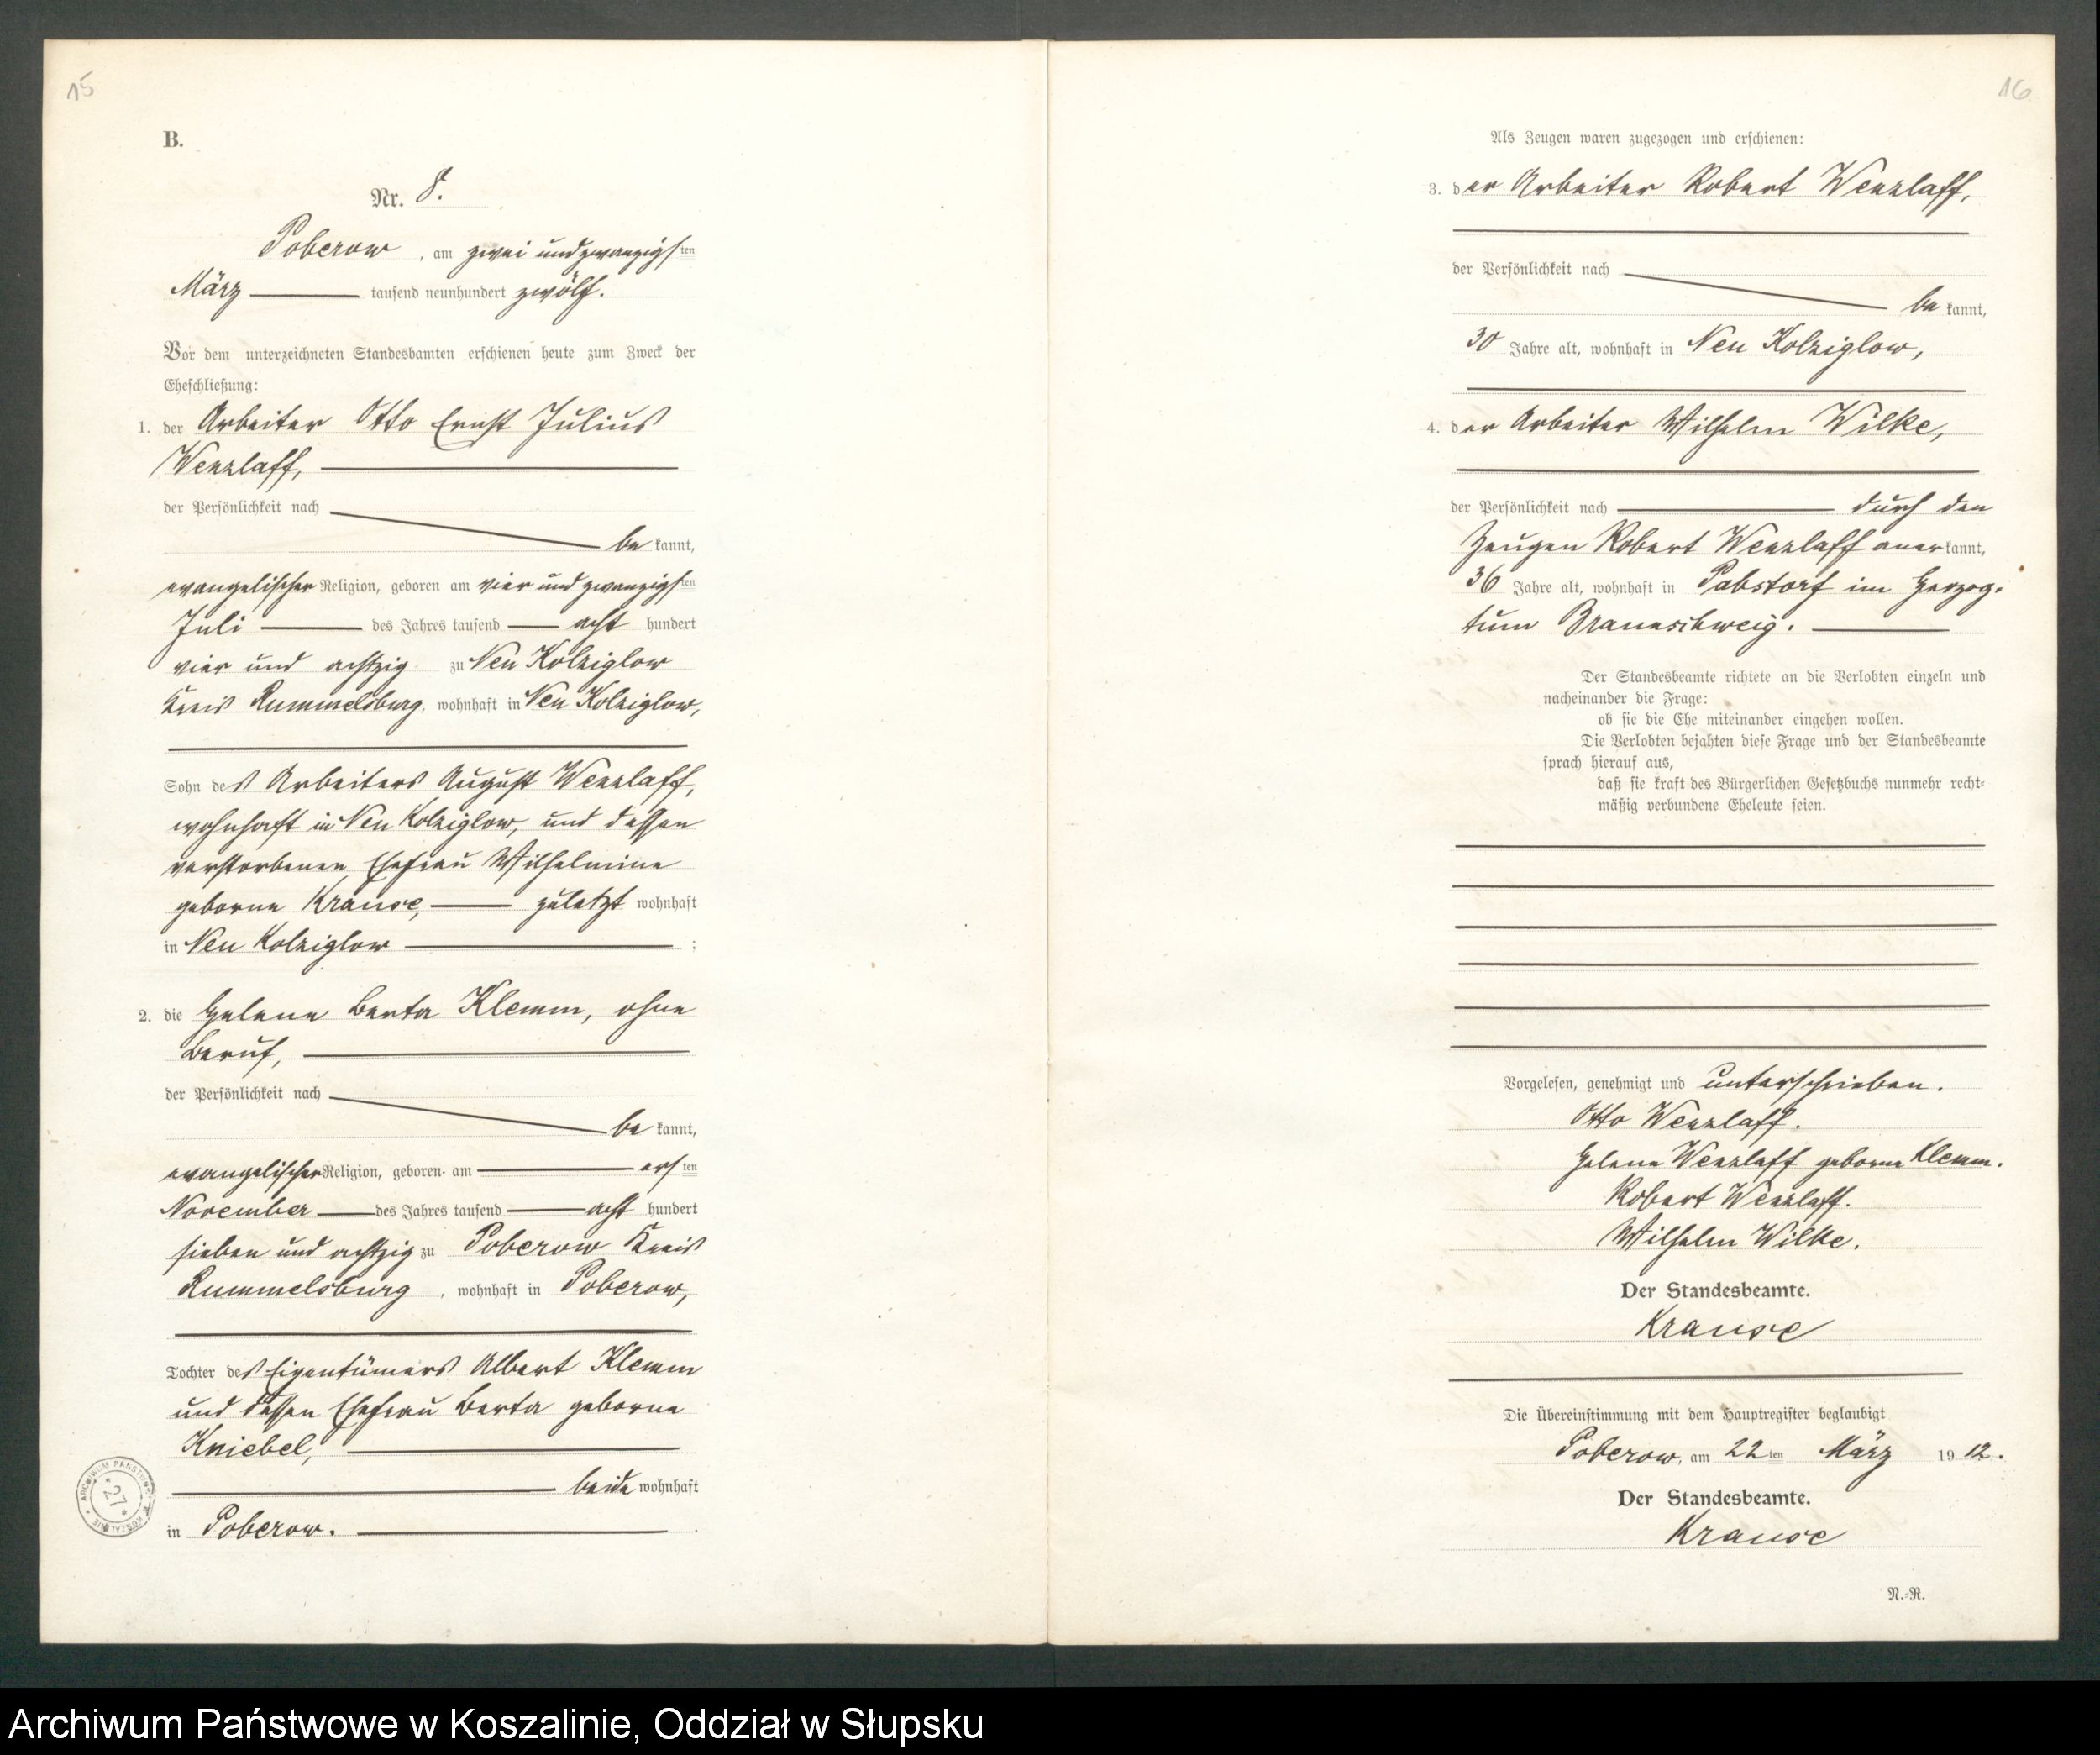 15
B.
Nr. 8.
Poberow, am zwei und zwanzigsten
März tausend neunhundert zwölf.
Vor dem unterzeichneten Standesbamten erschienen heute zum Zweck der
Eheschließung:
1. der Arbeiter Otto Ernst Julius
Wenzlaff,
der Persönlichkeit nach
bekannt,
evangelischer Religion, geboren am vier und zwanzigsten
Juli des Jahres tausend acht hundert
vier und achtzig zu Neu Kolziglow
Kreis Rummelsburg, wohnhaft in Neu Kolziglow,
Sohn des Arbeiters August Wenzlaff,
wohnhaft in Neu Kolziglow, und dessen
verstorbenen Ehefrau Wilhelmine
geborne Krause, zuletzt wohnhaft
in Neu Kolziglow ;
2. die Helene Berta Klemm, ohne
Beruf,
der Persönlichkeit nach
bekannt,
evangelischer Religion, geboren am ersten
November des Jahres tausend acht hundert
sieben und achtzig zu Poberow Kreis
Rummelsburg, wohnhaft in Poberow,
Tochter des Eigentümers Albert Klemm
und dessen Ehefrau Berta geborne
Kniebel,
beide wohnhaft
in Poberow.
ARCHIWUM PAŃSTWOWE W KOSZALINIE
* 27 *
16
Als Zeugen waren zugezogen und erschienen:
3. der Arbeiter Robert Wenzlaff,
der Persönlichkeit nach
bekannt,
30 Jahre alt, wohnhaft in Neu Kolziglow,
4. der Arbeiter Wilhelm Wilke,
der Persönlichkeit nach durch den
Zeugen Robert Wenzlaff anerkannt,
36 Jahre alt, wohnhaft in Pabstorf im Herzog-
tum Braunschweig.
Der Standesbeamte richtete an die Verlobten einzeln und
nacheinander die Frage:
ob sie die Ehe miteinander eingehen wollen.
Die Verlobten bejahten diese Frage und der Standesbeamte
sprach hierauf aus,
daß sie kraft des Bürgerlichen Gesetzbuchs nunmehr recht-
mäßig verbundene Eheleute seien.
Vorgelesen, genehmigt und unterschrieben.
Otto Wenzlaff.
Helene Wenzlaff geborne Klemm.
Robert Wenzlaff.
Wilhelm Wilke.
Der Standesbeamte.
Krause
Die Übereinstimmung mit dem Hauptregister beglaubigt
Poberow, am 22ten März 1912.
Der Standesbeamte.
Krause
N.-R.
Archiwum Państwowe w Koszalinie, Oddział w Słupsku